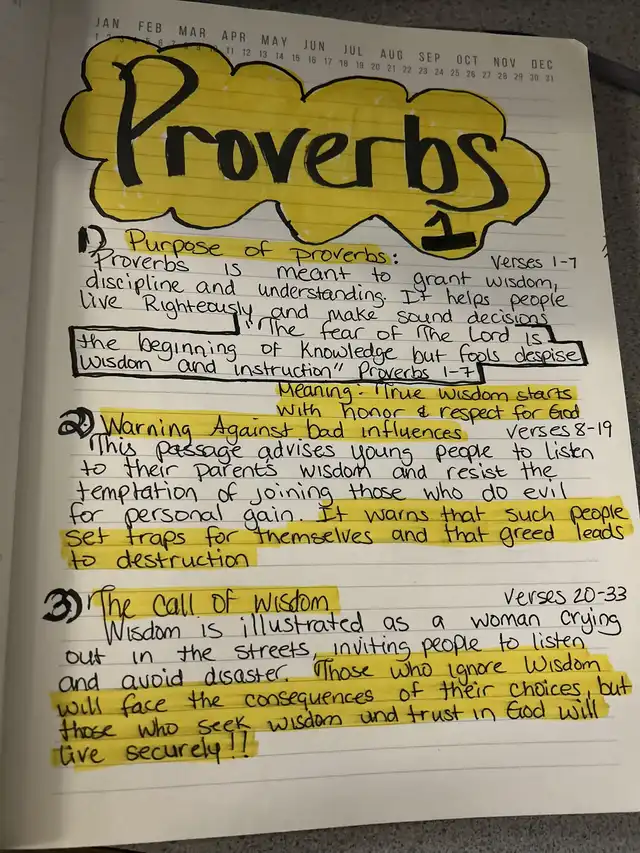 JAN FEB MAR APR MAY JUN JUL AUG SEP OCT NOV DEC
1 2 3 4 5 6 7 8 9 10 11 12 13 14 15 16 17 18 19 20 21 22 23 24 25 26 27 28 29 30 31
Proverbs
1
1) Purpose of proverbs: Verses 1-7
Proverbs is meant to grant wisdom,
discipline and understanding. It helps people
live Righteously and make sound decisions
"The fear of The Lord is
the beginning of Knowledge but fools despise
wisdom and instruction" Proverbs 1-7
Meaning: True wisdom starts
with honor & respect for God
2) Warning Against bad influences verses 8-19
This passage advises young people to listen
to their parents wisdom and resist the
temptation of joining those who do evil
for personal gain. It warns that such people
set traps for themselves and that greed leads
to destruction
3) The call of wisdom verses 20-33
Wisdom is illustrated as a woman crying
out in the streets, inviting people to listen
and avoid disaster. Those who ignore wisdom
will face the consequences of their choices, but
those who seek wisdom and trust in God will
live securely!!